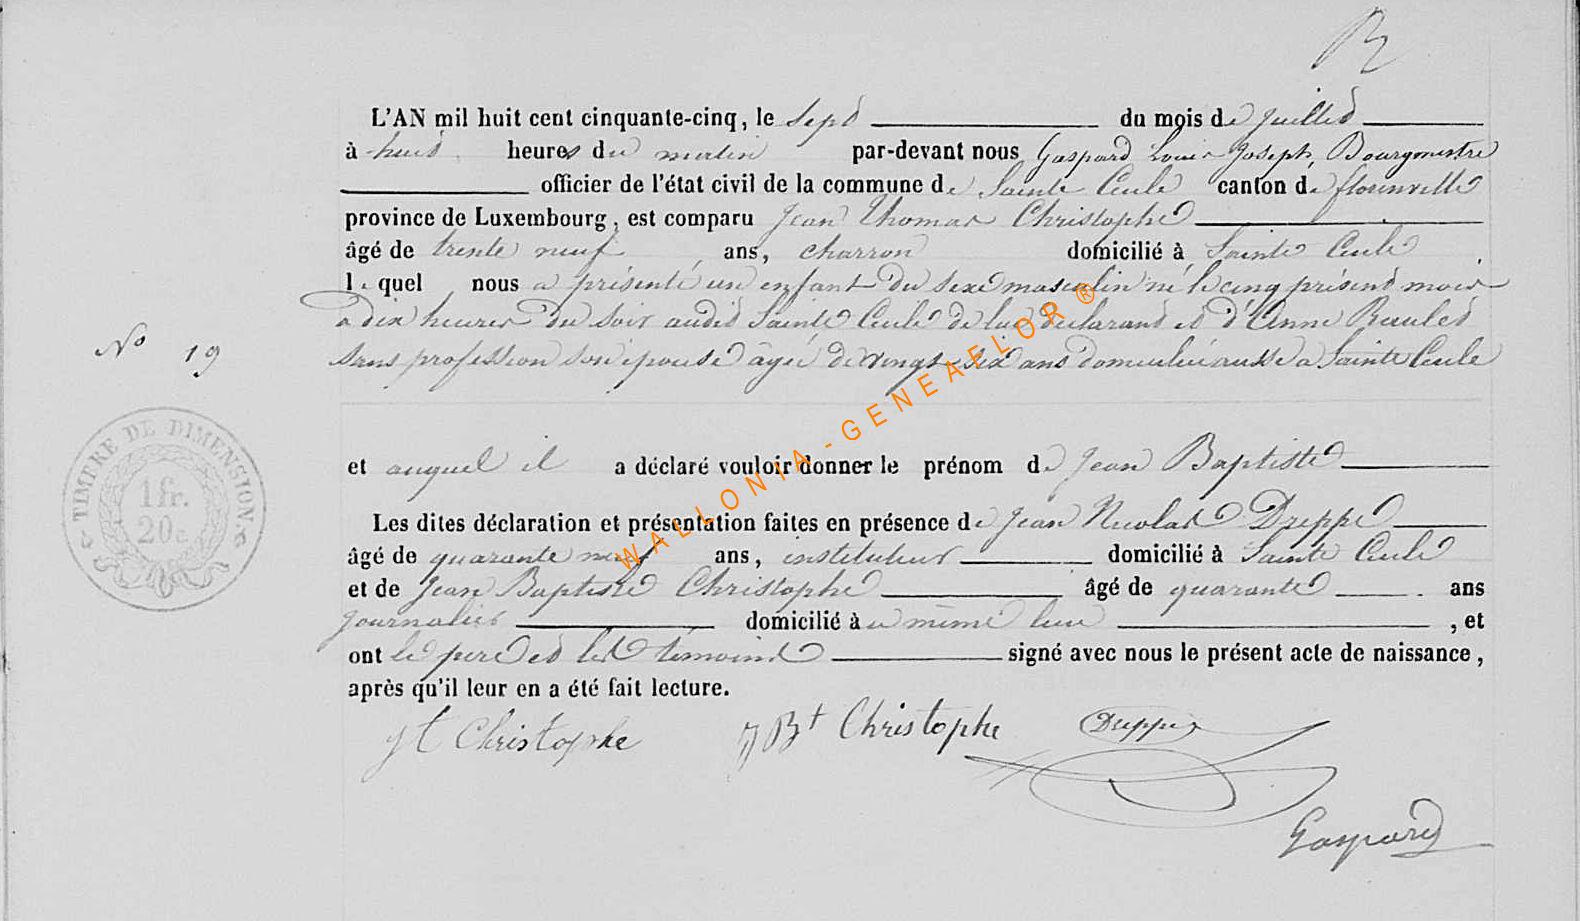 L'AN mil huit cent cinquante-cinq, le sept du mois de juillet
à huit heures du matin par-devant nous Gaspard Louis Joseph, Bourgmestre
officier de l'état civil de la commune de Sainte Cecile canton de florenville
province de Luxembourg, est comparu Jean Thomas Christophe
âgé de trente neuf ans, charron domicilié à Sainte Cecile
le quel nous a présenté un enfant du sexe masculin né le cinq présent mois
a dix heures du soir audit Sainte Cecile de lui déclarant et d'Anne
No 19
sans profession son épouse âgée de vingt-six ans domiciliée aussi a Sainte Cecile
TIMBRE DE DIMENSION.
1 fr.
20 c
et auquel il a déclaré vouloir donner le prénom de Jean Baptiste
Les dites déclaration et présentation faites en présence de Jean Nicolas Dreppe
âgé de quarante neuf ans, instituteur domicilié à Sainte Cecile
et de Jean Baptiste Christophe âgé de quarante ans
journalier domicilié à u même lieu , et
ont le pere et les témoins signé avec nous le présent acte de naissance,
après qu'il leur en a été fait lecture.
Jt Christophe JBt Christophe Dreppe
Gaspard
WALLONIA-GENEAFLOR ®